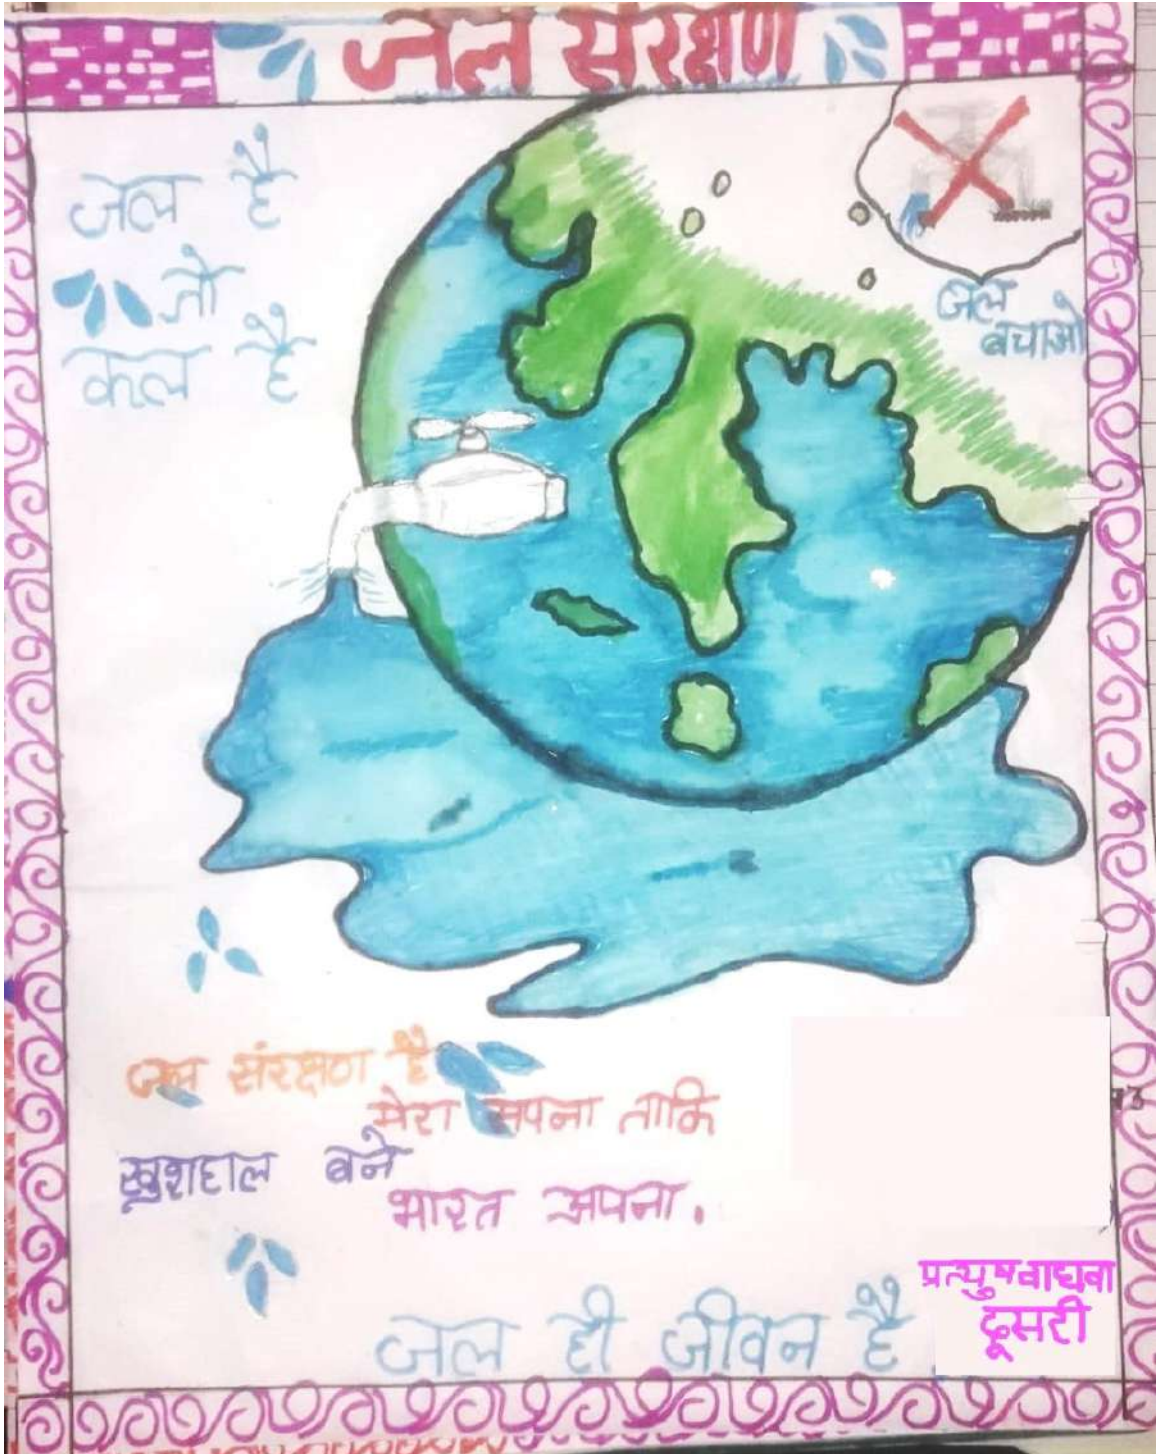 जल संरक्षण
जल है
तो
कल है
जल
बचाओ
जल संरक्षण है
मेरा सपना ताकि
खुशहाल बने
भारत अपना.
जल ही जीवन है
प्रत्युष वाघवा
दूसरी